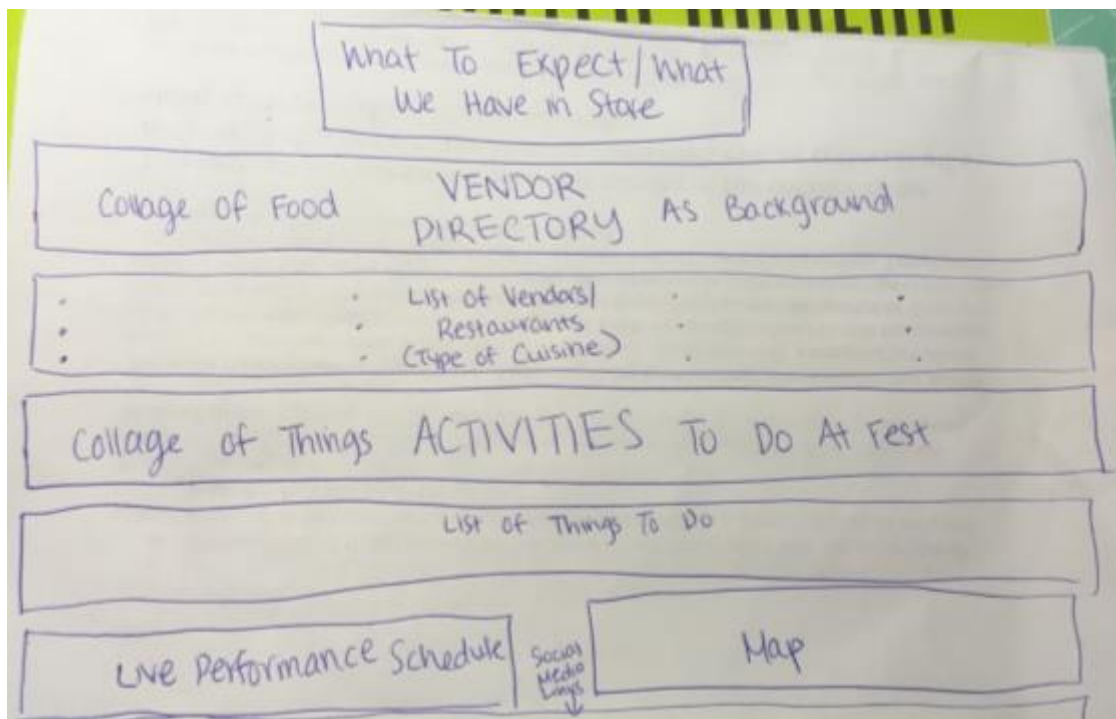 What To Expect/What
We Have in Store
Collage of Food VENDOR DIRECTORY As Background
List of Vendors/
Restaurants
(Type of Cuisine)
Collage of Things ACTIVITIES To Do At Fest
List of Things To Do
Live Performance Schedule
Social
Media
Map